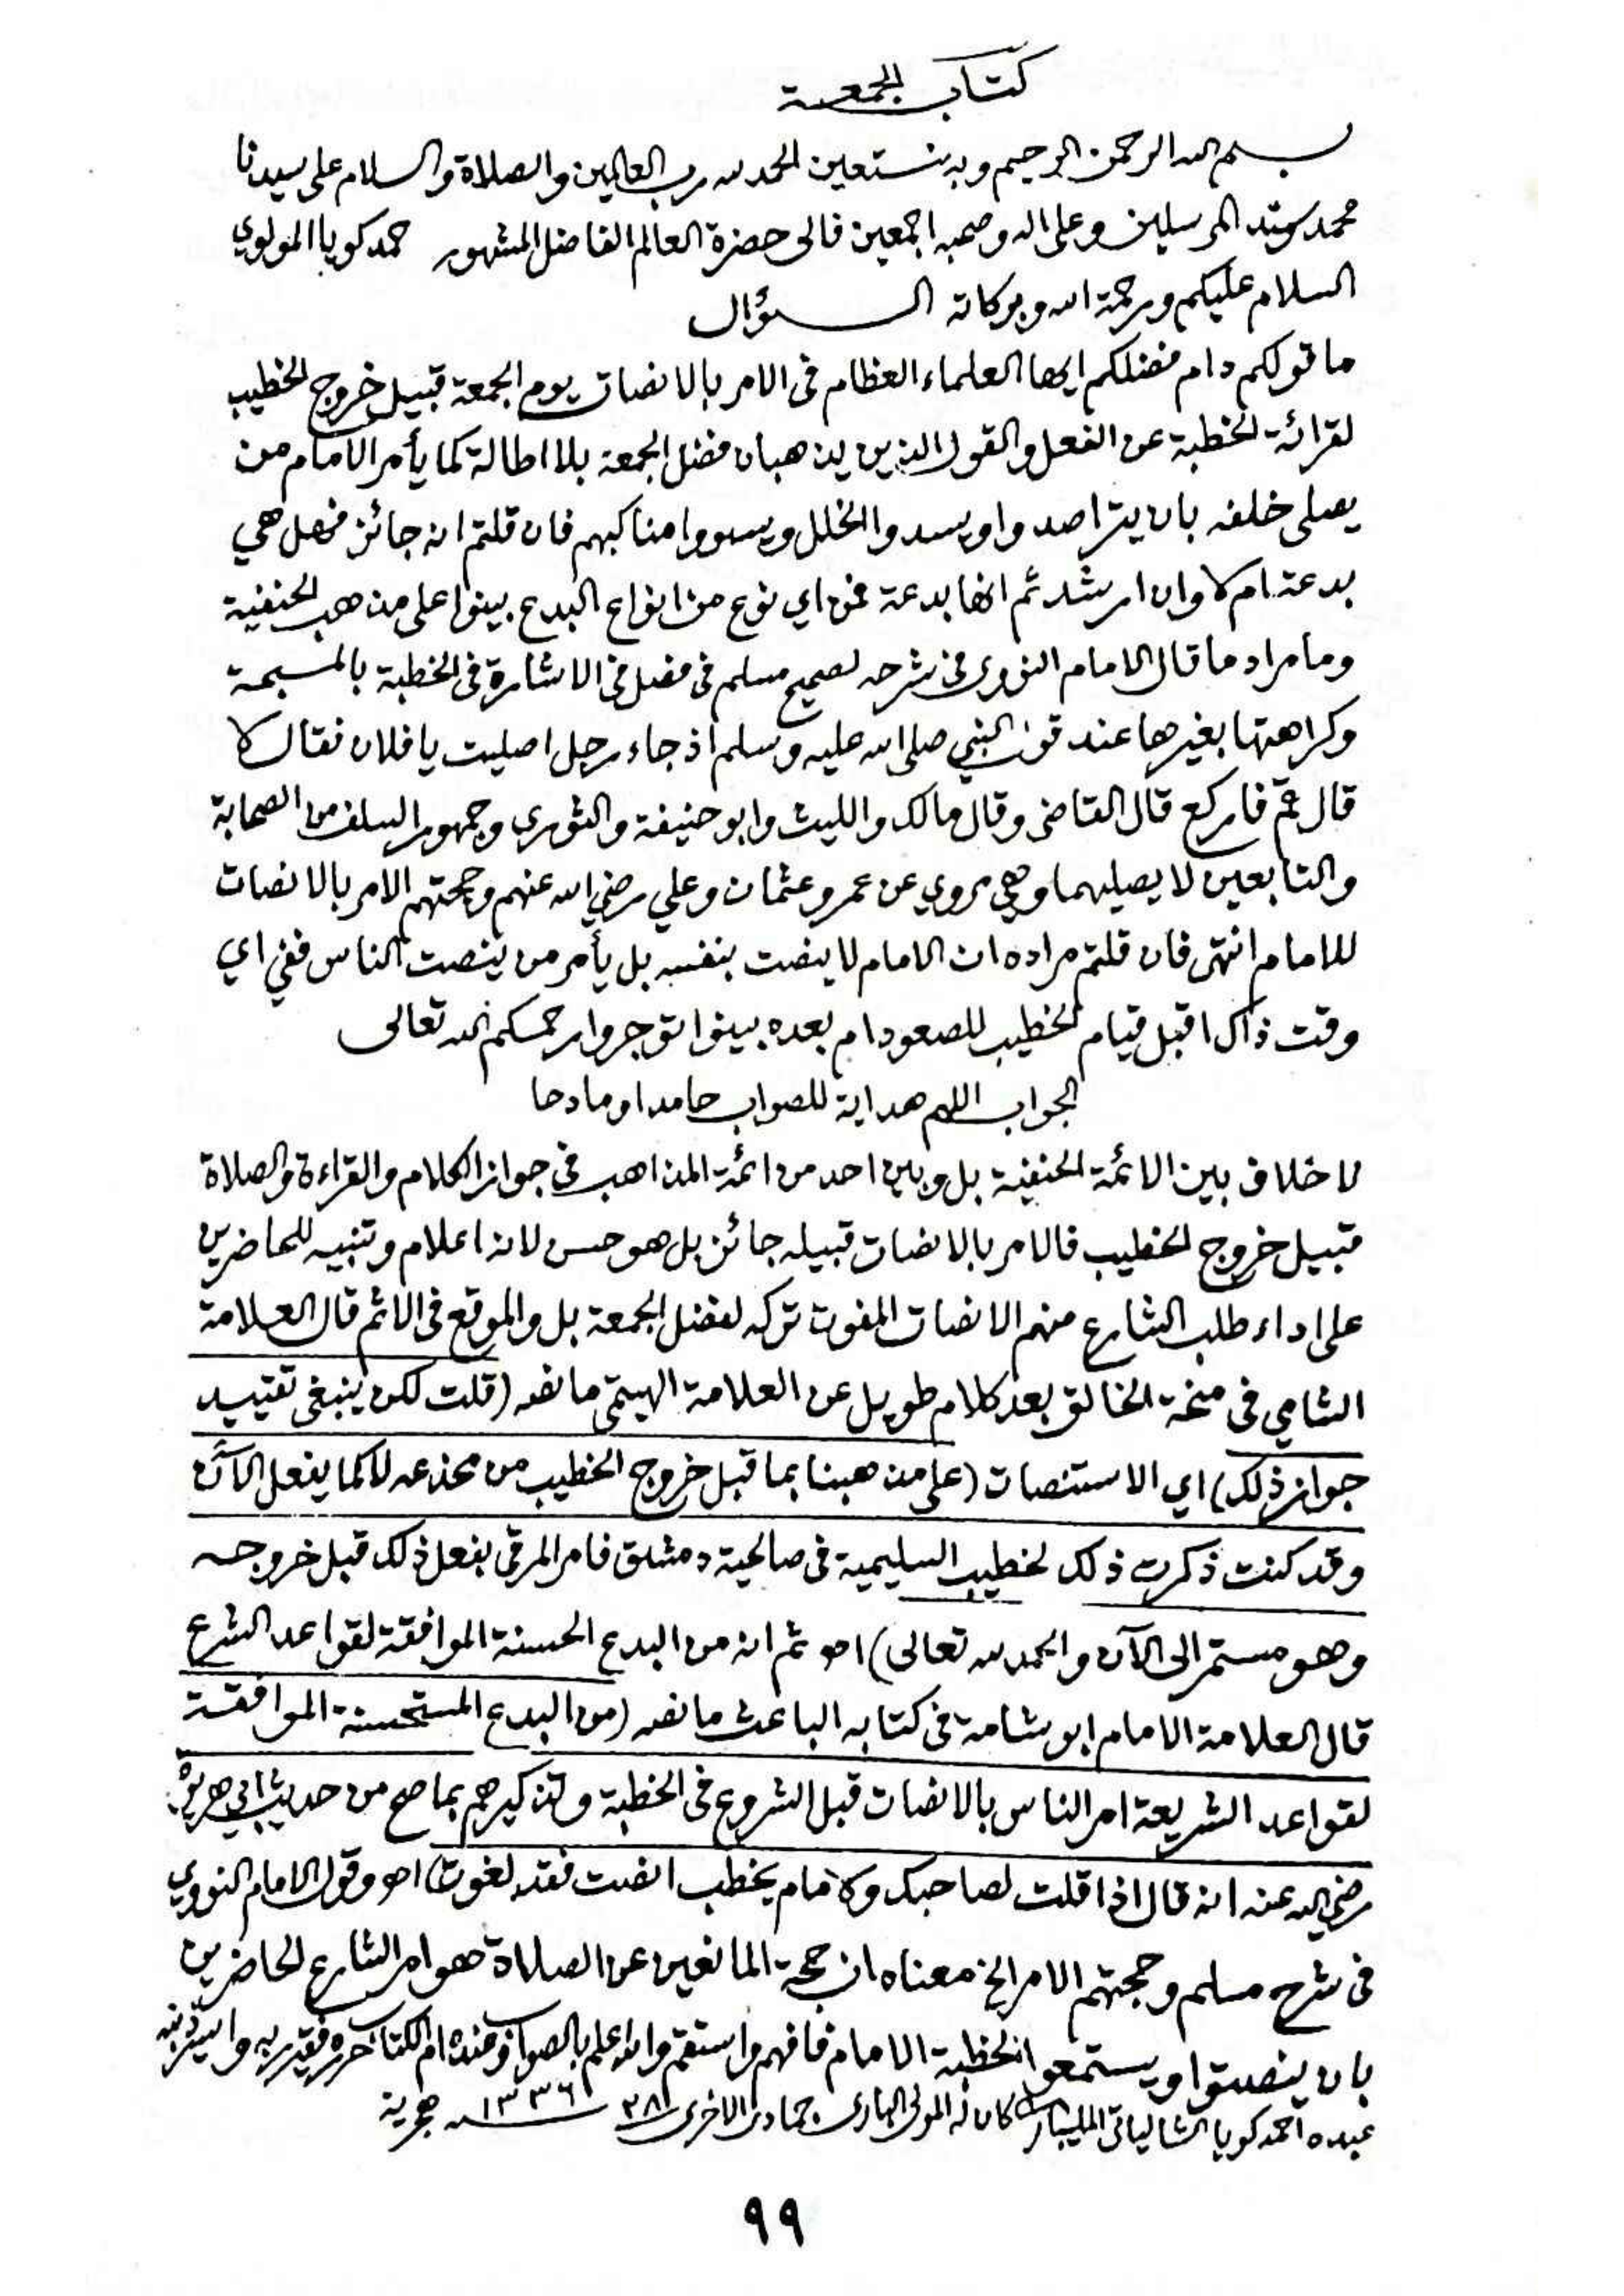 كتاب الجمعة
بسم الله الرحمن الرحيم وبه نستعين الحمد لله رب العالمين والصلاة والسلام على سيدنا
محمد سيد المرسلين وعلى اله وصحبه اجمعين فالى حضرة العالم الفاضل المشهور حمد كويا المولوي
السلام عليكم ورحمة الله وبركاته السؤال
ما قولكم دام فضلكم ايها العلماء العظام فى الامر بالانصات يوم الجمعة قبيل خروج الخطيب
لقرائة الخطبة عن الفعل والقول الذين يذهبان فضل الجمعة بلا اطالة كما يأمر الامام من
يصلى خلفه بان يتراصدوا ويسدوا الخلل ويسووا مناكبهم فان قلتم انه جائز فهل هي
بدعة ام لا وان ارشدتم انها بدعة فمن اي نوع من انواع البدع بينوا على مذهب الحنفية
وما مراد ما قال الامام النووى فى شرحه لصحيح مسلم فى فصل فى الاشارة فى الخطبة بالمسبحة
وكراهتها بغيرها عند قول النبي صلى الله عليه وسلم اذ جاء رجل اصليت يا فلان فقال لا
قال قم فاركع قال القاضى وقال مالك والليث وابو حنيفة والثوري وجمهور السلف من الصحابة
والتابعين لا يصليهما وهى مروي عن عمر وعثمان وعلي رضي الله عنهم وحجتهم الامر بالانصات
للامام انتهى فان قلتم مراده ان الامام لا ينصت بنفسه بل يأمر من ينصت الناس ففي اي
وقت ذاك اقبل قيام الخطيب للصعود ام بعده بينوا توجروا رحمكم الله تعالى
الجواب اللهم هداية للصواب حامدا ومادحا
لا خلاف بين الائمة الحنفية بل وبين احد من ائمة المذاهب فى جواز الكلام والقراءة والصلاة
قبيل خروج الخطيب فالامر بالانصات قبيله جائز بل هو حسن لانه اعلام وتنبيه للحاضرين
على اداء طلب الشارع منهم الانصات المفوت تركه لفضل الجمعة بل والموقع فى الاثم قال العلامة
الشامي فى منحة الخالق بعد كلام طويل عن العلامة الهيتمى ما نصه (قلت لكن ينبغى تقييد
جواز ذلك) اي الاستنصات (على مذهبنا بما قبل خروج الخطيب من مخدعه لا كما يفعل الآن
وقد كنت ذكرت ذلك لخطيب السليمية فى صالحية دمشق فامر المرقى بفعل ذلك قبل خروجه
وهو مستمر الى الآن والحمد لله تعالى) اهـ ثم انه من البدع الحسنة الموافقة لقواعد الشرع
قال العلامة الامام ابو شامة فى كتابه الباعث ما نصه (من البدع المستحسنة الموافقة
لقواعد الشريعة امر الناس بالانصات قبل الشروع فى الخطبة وتذكيرهم بما صح من حديث ابي هريرة
رضي الله عنه انه قال اذا قلت لصاحبك والامام يخطب انصت فقد لغوت) اهـ وقول الامام النووي
فى شرح مسلم وحجتهم الامر الخ معناه ان حجة المانعين عن الصلاة هو امر الشارع الحاضرين
بان ينصتوا ويستمعوا لخطبة الامام فافهم واستقم والله اعلم بالصواب وعنده ام الكتاب حرره فقير ربه واسير ذنبه
عبده احمد كويا الشالياتى المليبارى كان له المولى البارى جمادى الاخرى ١٣٣٦ هجرية
٩٩